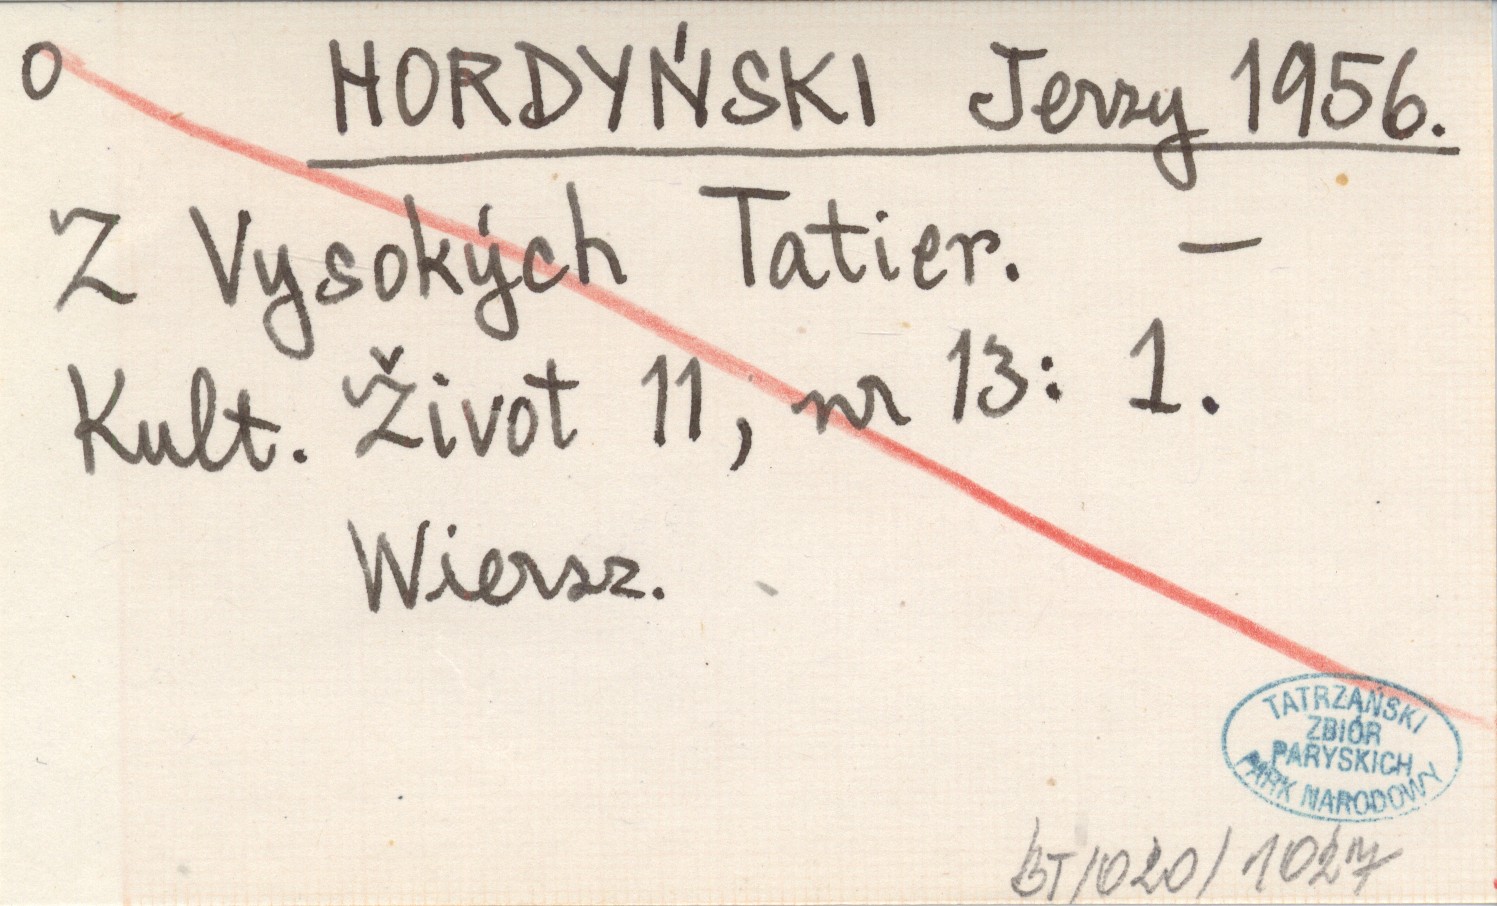 O HORDYŃSKI Jerzy 1956.
Z Vysokých Tatier. —
Kult. Život 11, nr 13: 1.
Wiersz.
TATRZAŃSKI
ZBIÓR
PARYSKICH
PARK NARODOWY
BT/020/1027